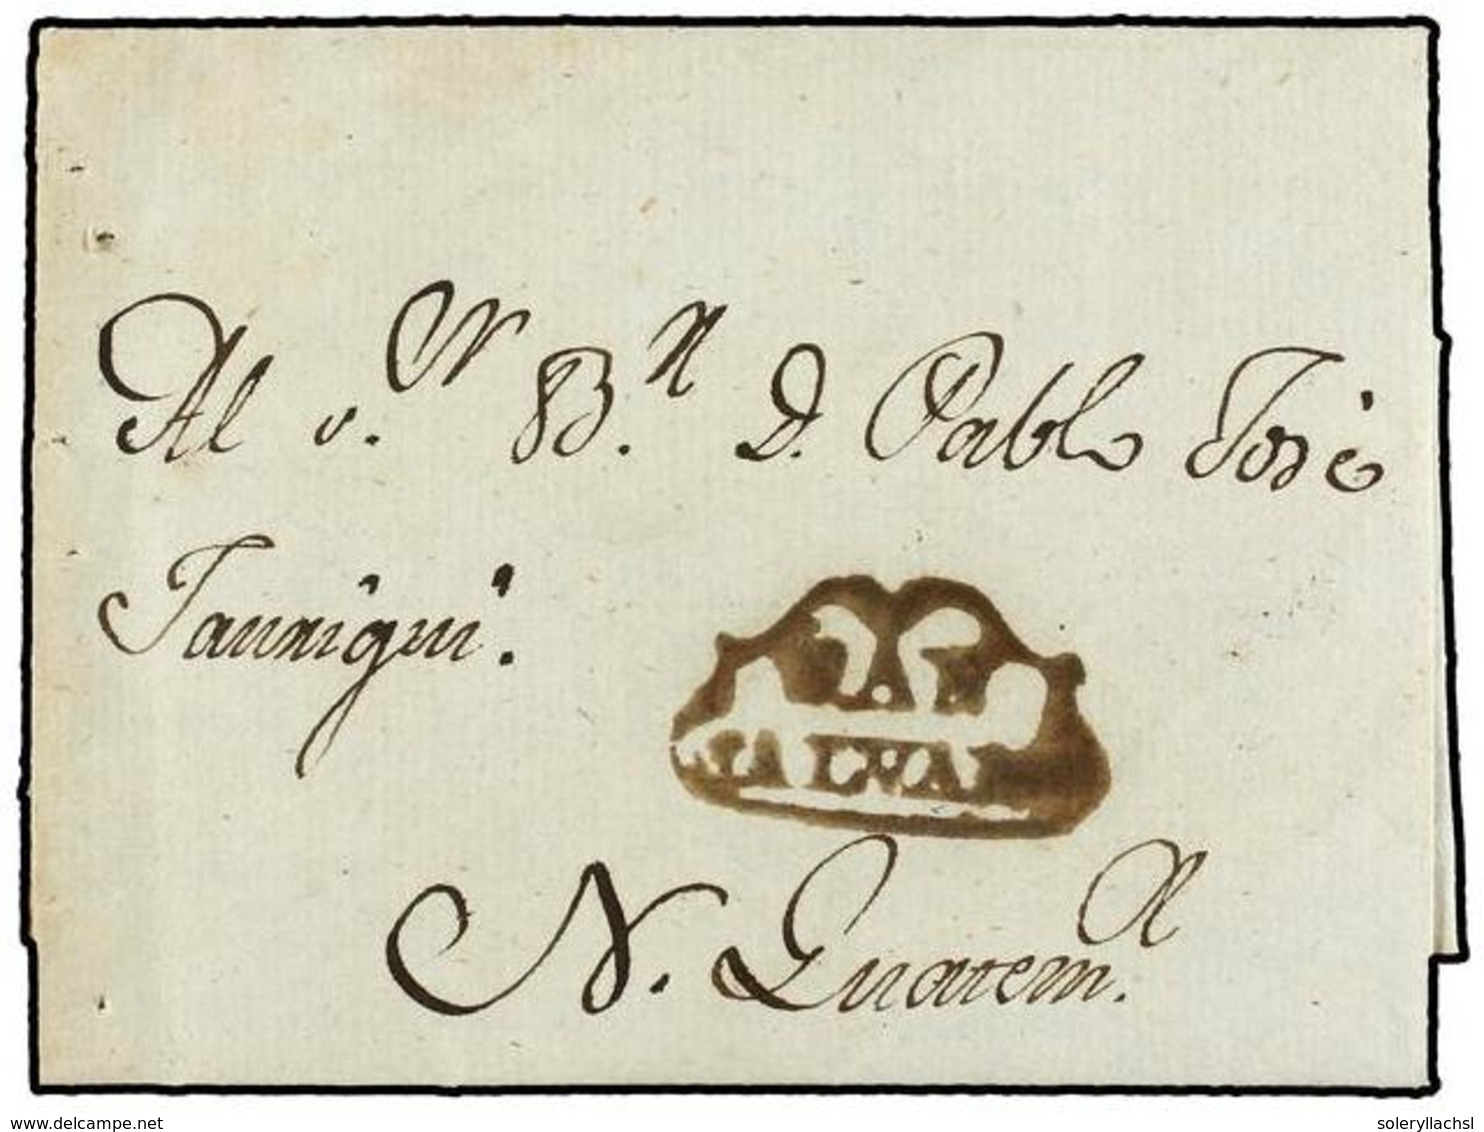 Al S.ᵒʳ B.ʳ D. Pablo José
Jauregui.
SAN
SALVADOR
N. Guatem.ᵃ
www.delcampe.net
soleryllachsl